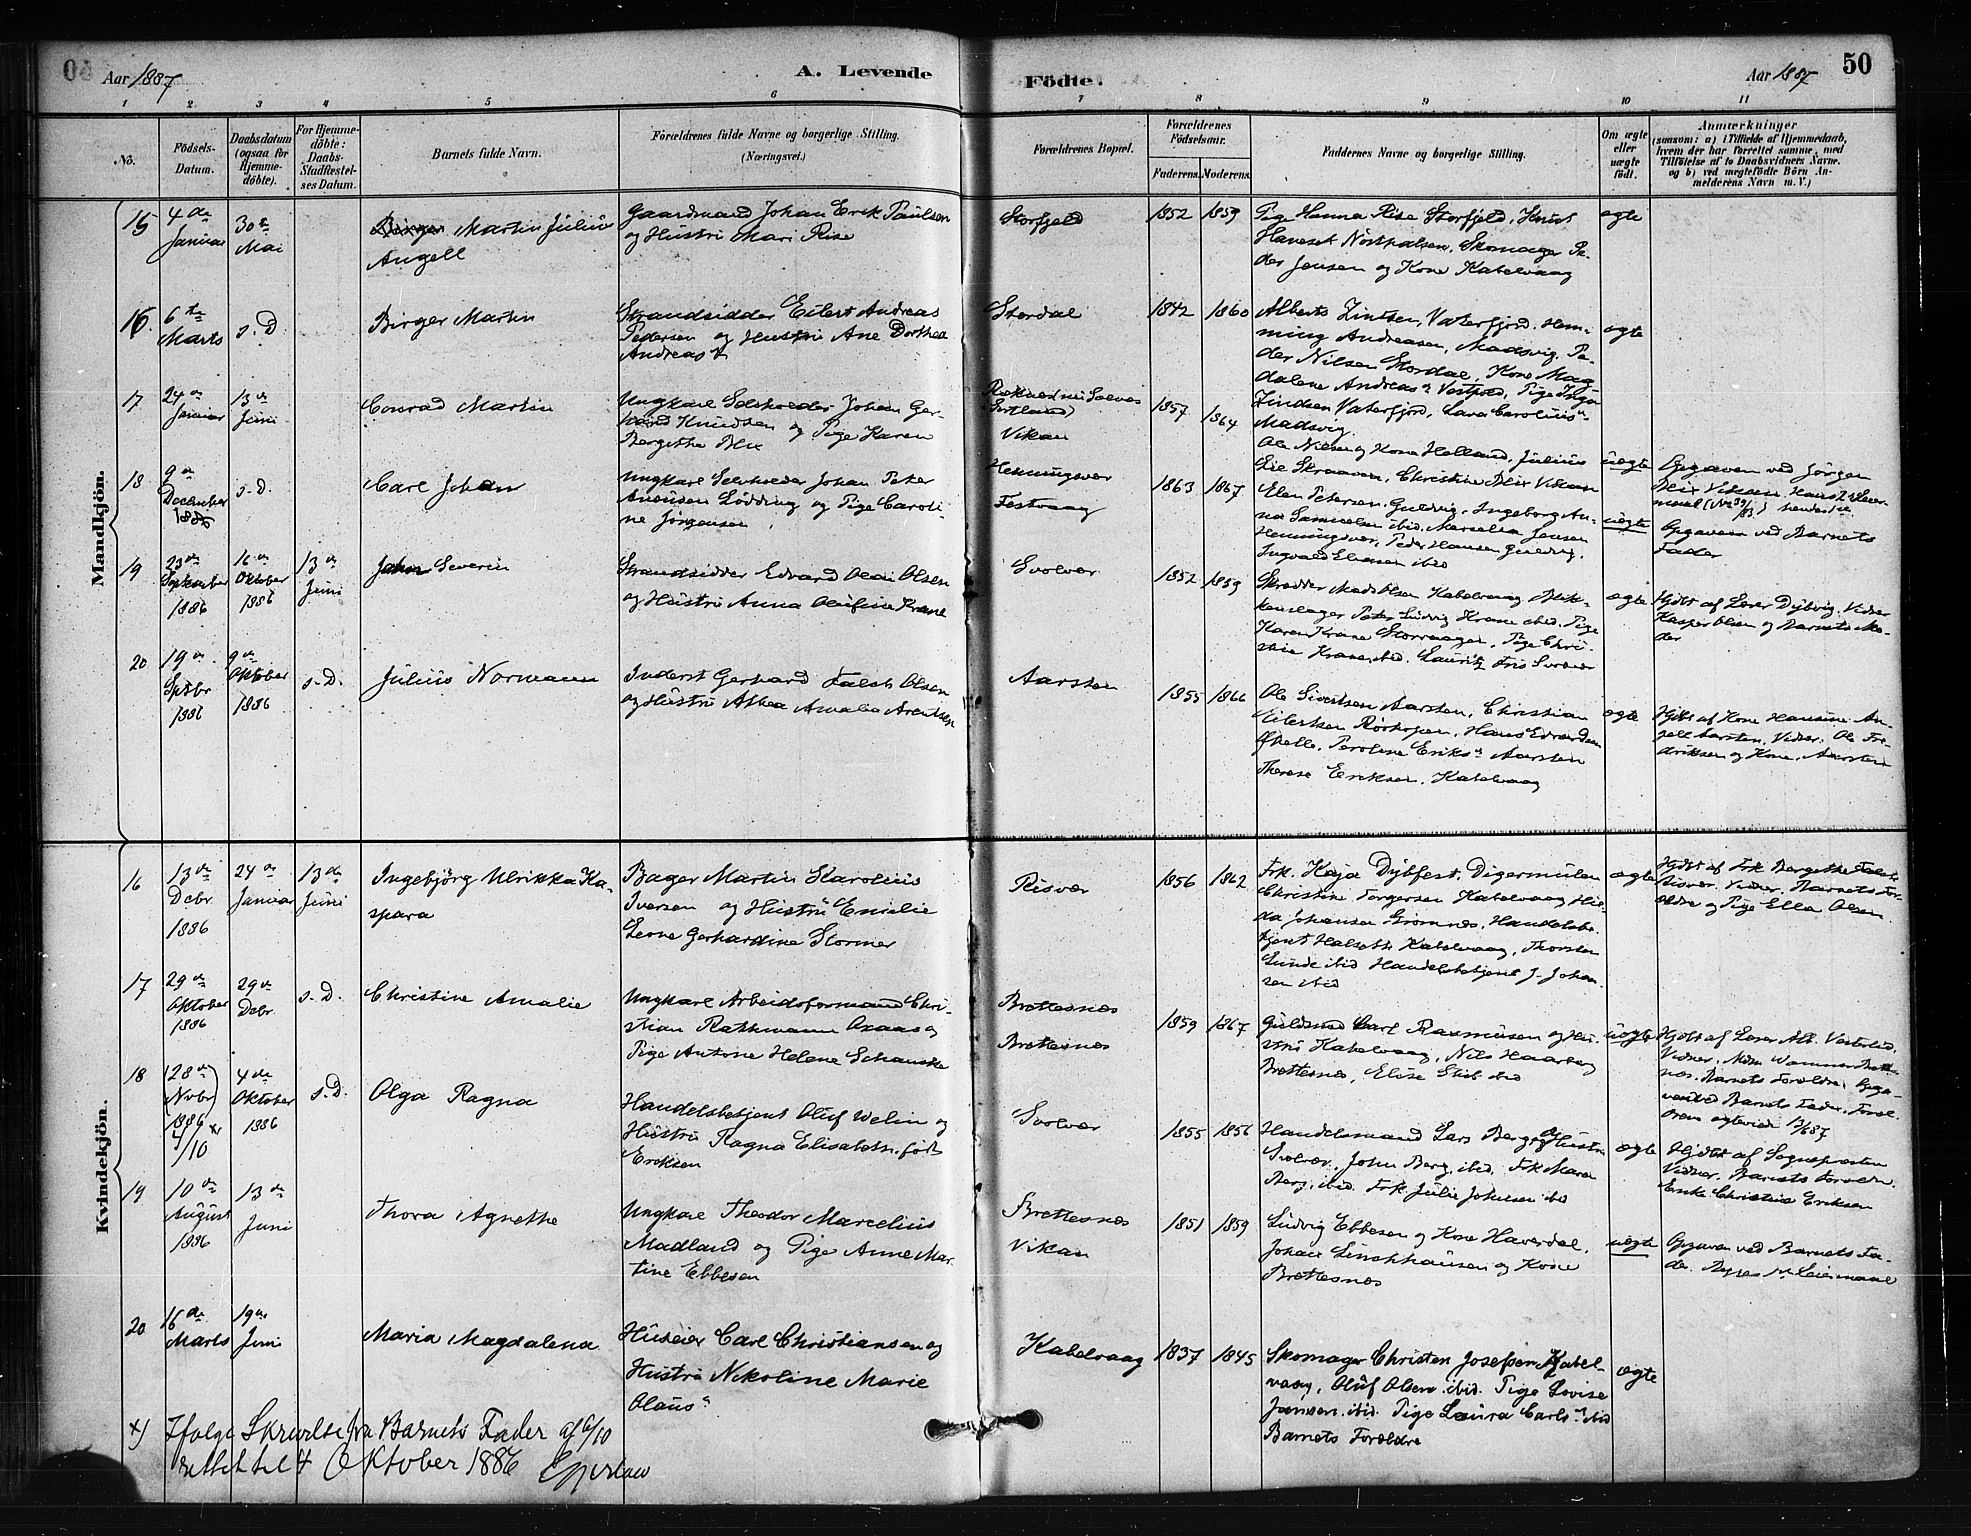 Aar 1887
A. Levende
Födte.
Aar 1887
50
1 2 3 4 5 6 7 8 9 10 11
No.
Födsels-
Datum.
Daabsdatum
(ogsaa for
Hjemme-
döbte).
For Hjemme-
döbte:
Daabs-
Stadfæstel-
ses Datum.
Barnets fulde Navn.
Forældrenes fulde Navne og borgerlige Stilling.
(Næringsvei.)
Forældrenes Bopæl.
Forældrenes
Födselsaar.
Faderens. Moderens.
Faddernes Navne og borgerlige Stilling.
Om ægte
eller
uægte
födt.
Anmærkninger
(saasom: a) i Tilfælde af Hjemmedaab,
hvem der har forrettet samme, med
Tilföielse af to Daabsvidners Navne.
og b) ved uægtefödte Börn An-
melderens Navn m. V.)
Mandkjön.
15
4de
Januar
30te
Mai
Birger Martin Julius
Angell
Gaardmand Johan Erik Paulsen
og Hustru Mari Rise
Storfjeld
1852 1859
Pige Hanna Rise Storfjeld, Knut
Skomager Pe-
der Jensen og Kone Kabelvaag
ægte
16.
6te
Marts
s. D
Birger Martin
Strandsidder Eilert Andreas
Pedersen og Hustru Ane Dorthea
Stordal
1842 1860
Vaterfjord, Hem-
ming Andreasen, Madsvig, Pe-
der Nilsen Stordal, Kone Mag-
dalene Pige Inga
Vaterfjord,
Madsvig.
ægte
17
24de
Januar
13de
Juni
Conrad Martin
Ungkarl Johan Ger-
hard Knudsen og Pige Karen
Bergithe Blix
Vikan
1857 1864
Ole Nilsen og Kone Holland, Julius
Lie Skraaven, Christine Blix Vikan
uægte
Opgaven ved Jørgen
Blix Vikan,
18
9de
December
1886
s. D.
Carl Johan
Ungkarl Johan Peter
og Pige Caroli-
ne Jørgensen
Henningsvær
Festvaag
1863 1867
Elen Petersen, Guldvig, Ingeborg An-
na Samuelsen ibid, Jensen
Henningsvær, Peder Hansen Guldvig,
Ingvald Eliasen ibid
uægte
Opgaven ved Barnets
Fader
19
23de
September
1886
16de
Oktober
1886
13de
Juni
Johan Severin
Strandsidder Edvard Olai Olsen
og Hustru Anna Olufine Krane
Svolvær
1852 1859
Skrædder Mads Olsen Kabelvaag, Blik-
kenslager Peter Ludvig Krane ibid, Pige
Karen Krane Storvaagen, Pige Chri-
stie Krane, ibid. Lauritz Friis Svolvær
ægte
Hjdbt af Lærer Dybvig. Vidner
Kasper Olsen og Barnets Mo-
der
20
19de
Sptbr
1886
9de
Oktober
1886
s. D.
Julius Normann
Inderst Gerhard Falch Olsen
og Hustru Althea Amalie Arentsen
Aarsten
1855 1866
Ole Sivertsen Aarsten, Christian
Eilertsen Rørhopen, Hans Edvardsen
Ørkelle, Eriksn Aarsten
Therese Eriksen, Kabelvaag
ægte
Hjdbt af Kone Hansine An-
gell Aarsten, Vidner, Ole Fre-
driksen og Kone, Aarsten
Kvindekjön.
16
13de
Debr
1886
24de
Januar
13de
Juni
Ingebjörg Ulrikka Ka-
spara
Bager Martin Karolius
Iversen og Hustru Emilie
Lerne Gerhardine Stormer
Risvær
1856 1862
Frk. Kaja Dybfest, Digermulen
Christine Torgersen Kabelvaag, Hil-
da Johansen Grønnes, Handelsbe-
tjent Halseth Kabelvaag, Thorsten
Lunde ibid Handelsbetjent J. Johan-
sen ibid
ægte
Hjdbt af Frk Bergethe Falch
Risvær. Vidner, Barnets For-
ældre og Pige Ella Olsen
17
29de
Oktober
1886
29de
Debr
s. D.
Christine Amalie
Ungkarl Arbeidsformand Chri-
stian Rathmann Oxaas og
Pige Antone Helene Schanche
Brettesnes
Brettesnes
1859 1867
Guldsmed Carl Rasmussen og Hu-
stru Kabelvaag, Nils Haarberg
Brettesnes, Elise ibid
uægte
Hjdbt af Lærer Alb. Vesterlid.
Vidner, Brettes-
nes. Barnets Forældre, Opga-
ven ved Barnets Fader. Foræl-
drene ægteviede 13/6 87
18
(28de
Novbr)
1886
4/10 x)
4de
Oktober
1886
s. D.
Olga Ragna
Handelsbetjent Oluf Welin og
Hustru Ragna Elisabeth, født
Eriksen
Svolvær
1855 1856
Handelsmand Lars Berg og Hustru
Svolvær, John Berg, ibid. Frk Mara
Berg, ibid. Frk Julie Johnsen ibid
ægte
Hjdbt af Sognepresten
Vidner, Barnets Forældre,
Enke Christine Eriksen
19
10de
August
1886
13de
Juni
Thora Agnethe
Ungkarl Theodor Marcelius
Madland og Pige Anne Mar-
tine Ebbesen
Brettesnes
Vikan
1851 1859
Ludvig Ebbesen og Kone Haverdal,
Johan Linchhausen og Kone
Brettesnes
uægte
Opgaven ved Barnets Fa-
der. Leiermaal
20
16de
Marts
19de
Juni
Maria Magdalena
Huseier Carl Christiansen og
Hustru Nikoline Marie
Olausn
Kabelvaag
1837 1845
Skomager Christen Josefsen Kabel-
vaag, Oluf Olsen ibid. Pige Lovise
Jensen ibid. Pige Laura Carlsn ibid
Barnets Forældre
ægte
x) Ifølge Skrivelse fra Barnets Fader af 6/10
rettet til 4 Oktober 1886